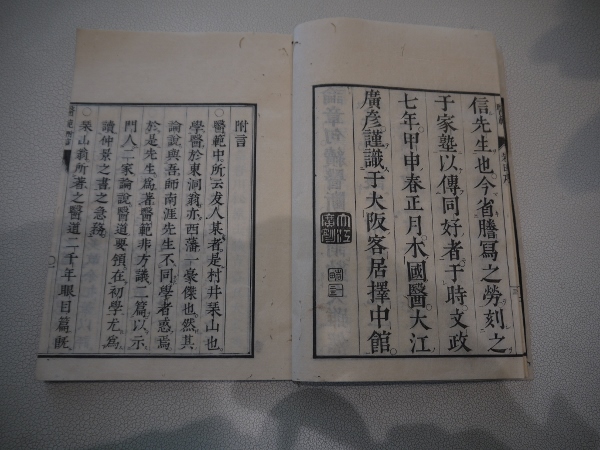 信先生也今省謄寫之勞刻之
于家塾以傳同好者于時文政
七年甲申春正月水國醫大江
廣彦謹識于大阪客居擇中館
附言
○醫範中所云友人某者是村井琹山也
學醫於東洞翁亦西藩一豪傑也然其
論說與吾師南涯先生不同學者惑焉
於是先生為著醫範非方議二篇以示
門人二家論說醫道要領在初學尤為
讀仲景之書之急務
○琹山翁所著之醫道二千年眼目篇既